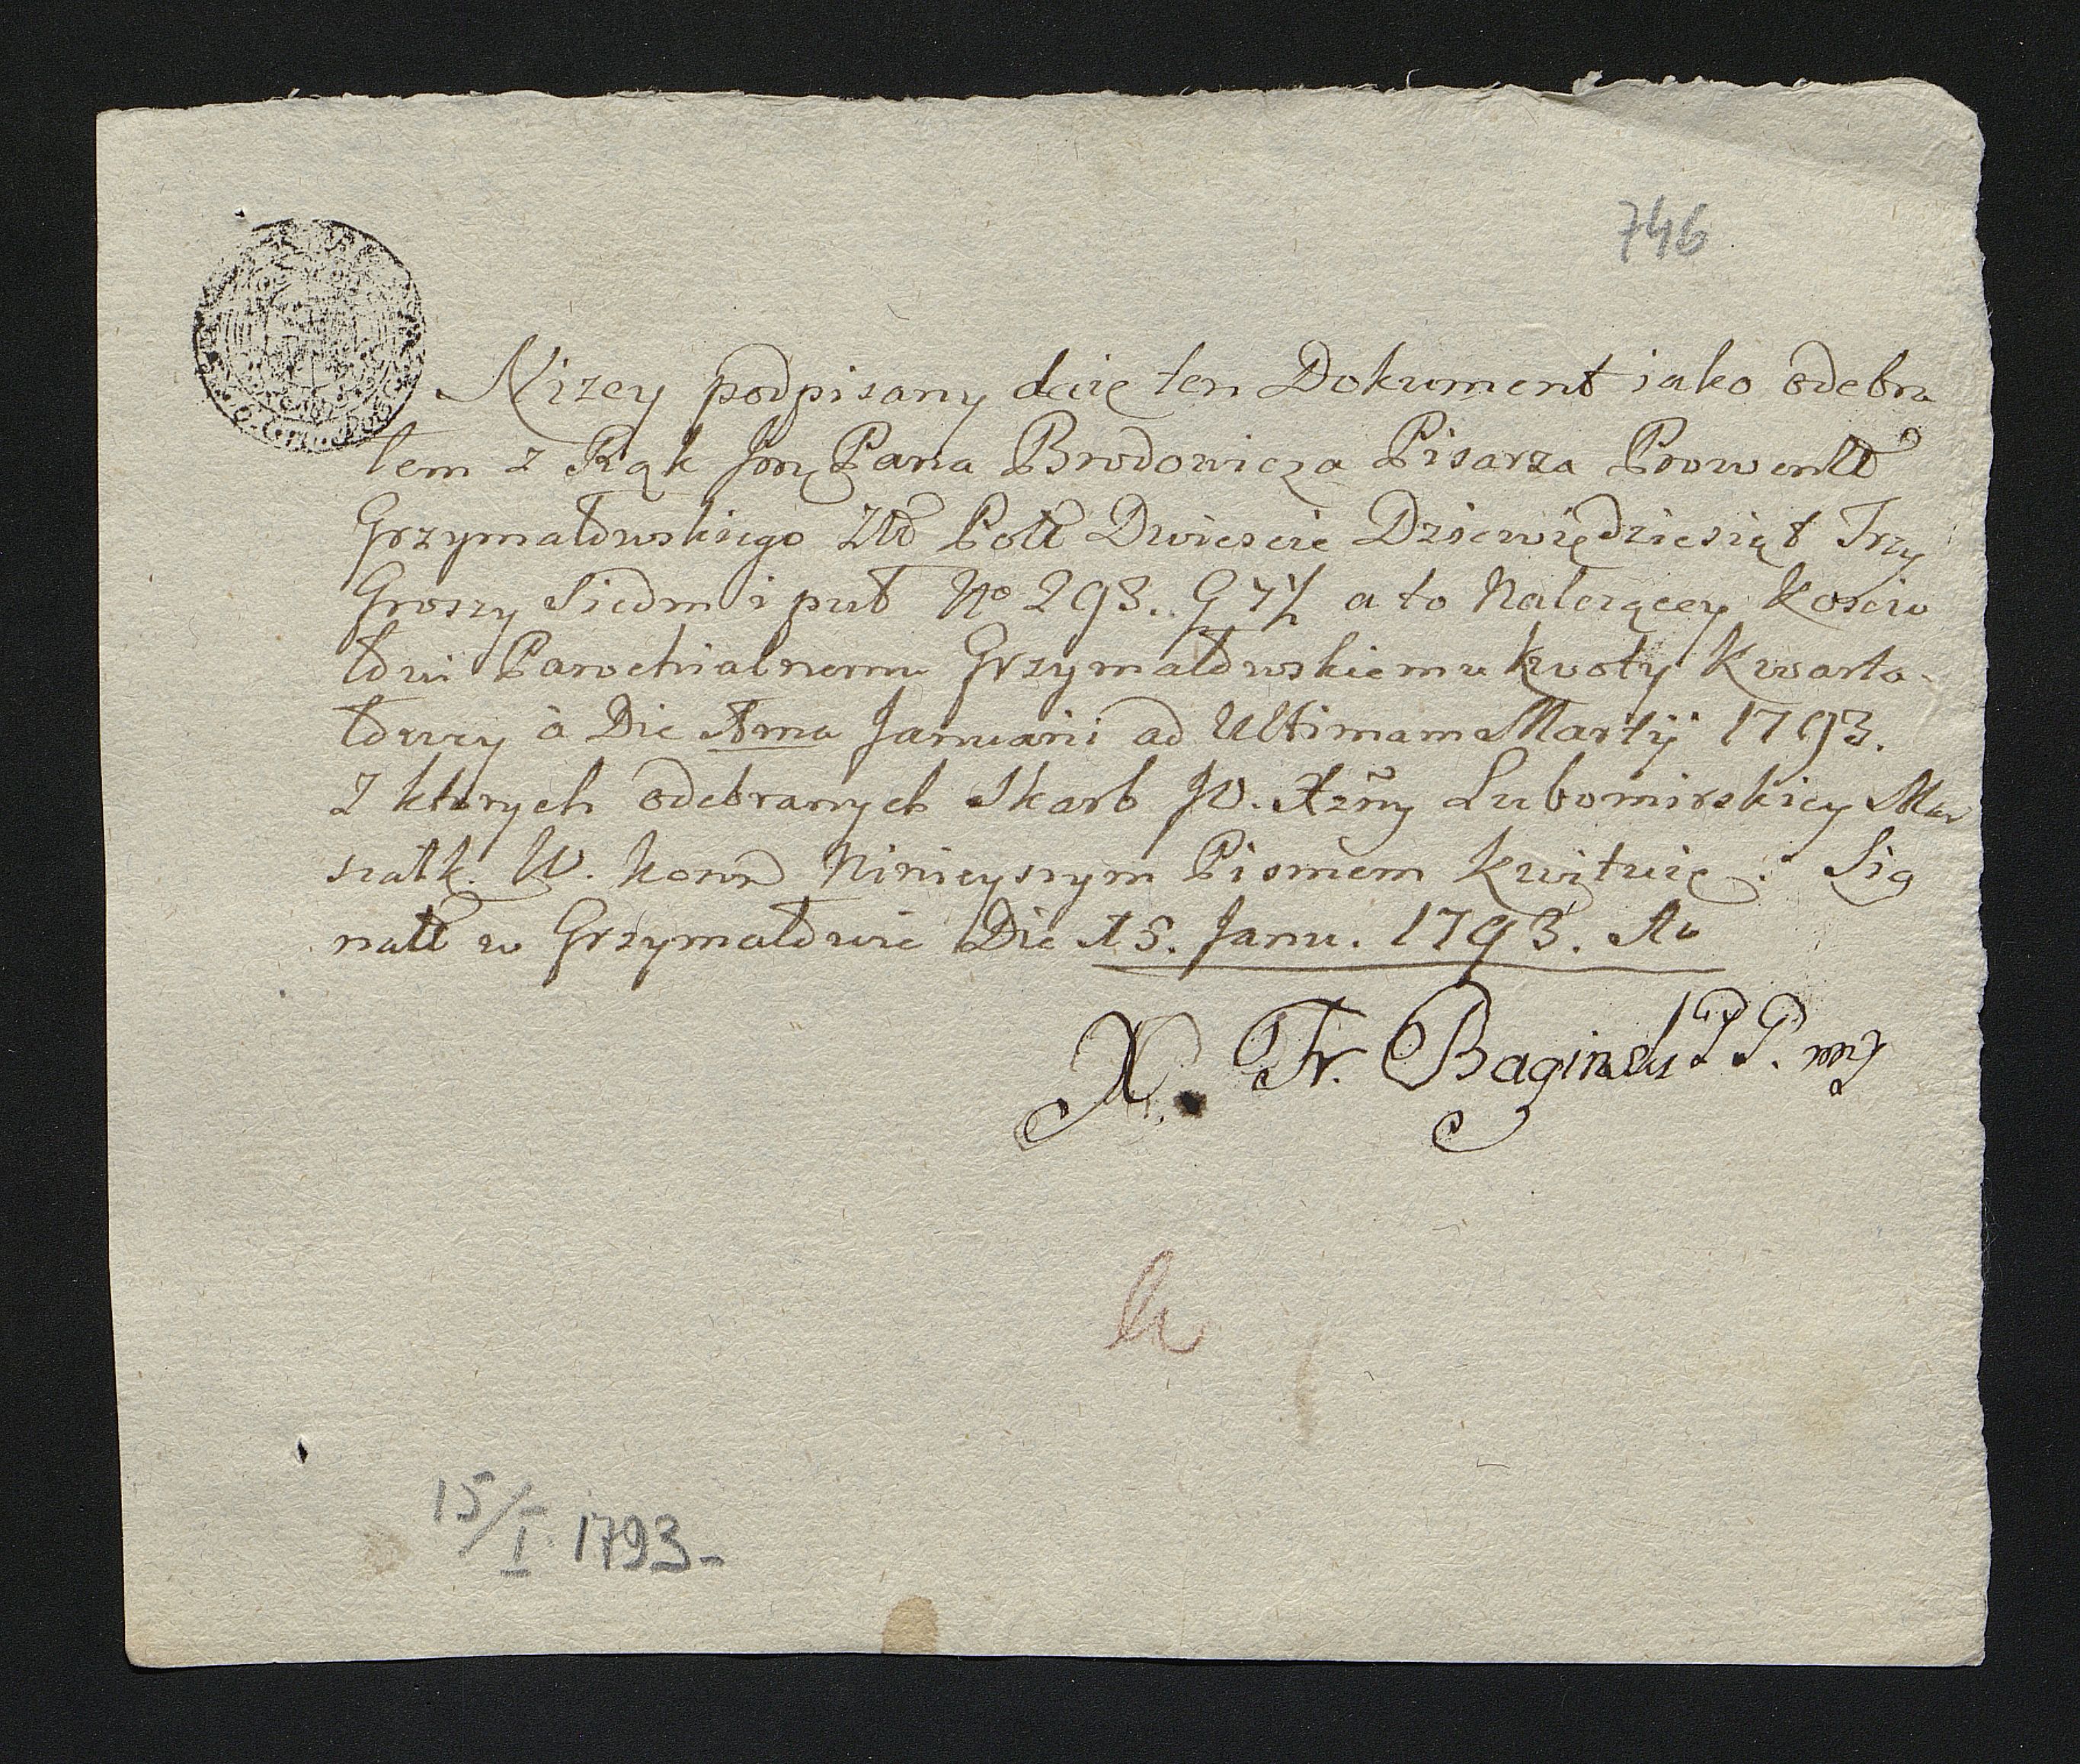 746
Nizey podpisany daię ten Dokument iako odebra
łem z Rąk Jmć Pana Brodowicza Pisarza Prowentt
Grzymałowskiego Złł Poll Dwiescie Dziewiędziesiąt Trzy
Groszy Siedm i puł No 293. G 7½ a to Nalezącey Koscio
łowi Parochialnemu Grzymałowskiemu kwoty Kwarta-
łowey à Die 1ma Januarii ad Ultimam Martij 1793.
z ktorych odebranych Skarb JO. Xżny Lubomirskiey Mar
szałk. W. Korr Ninieyszym Pismem kwituię. Sig
natt w Grzymałowie Die 15. Janu. 1793. Ao
X. Fr. Baginski P G. mp
15/I. 1793-